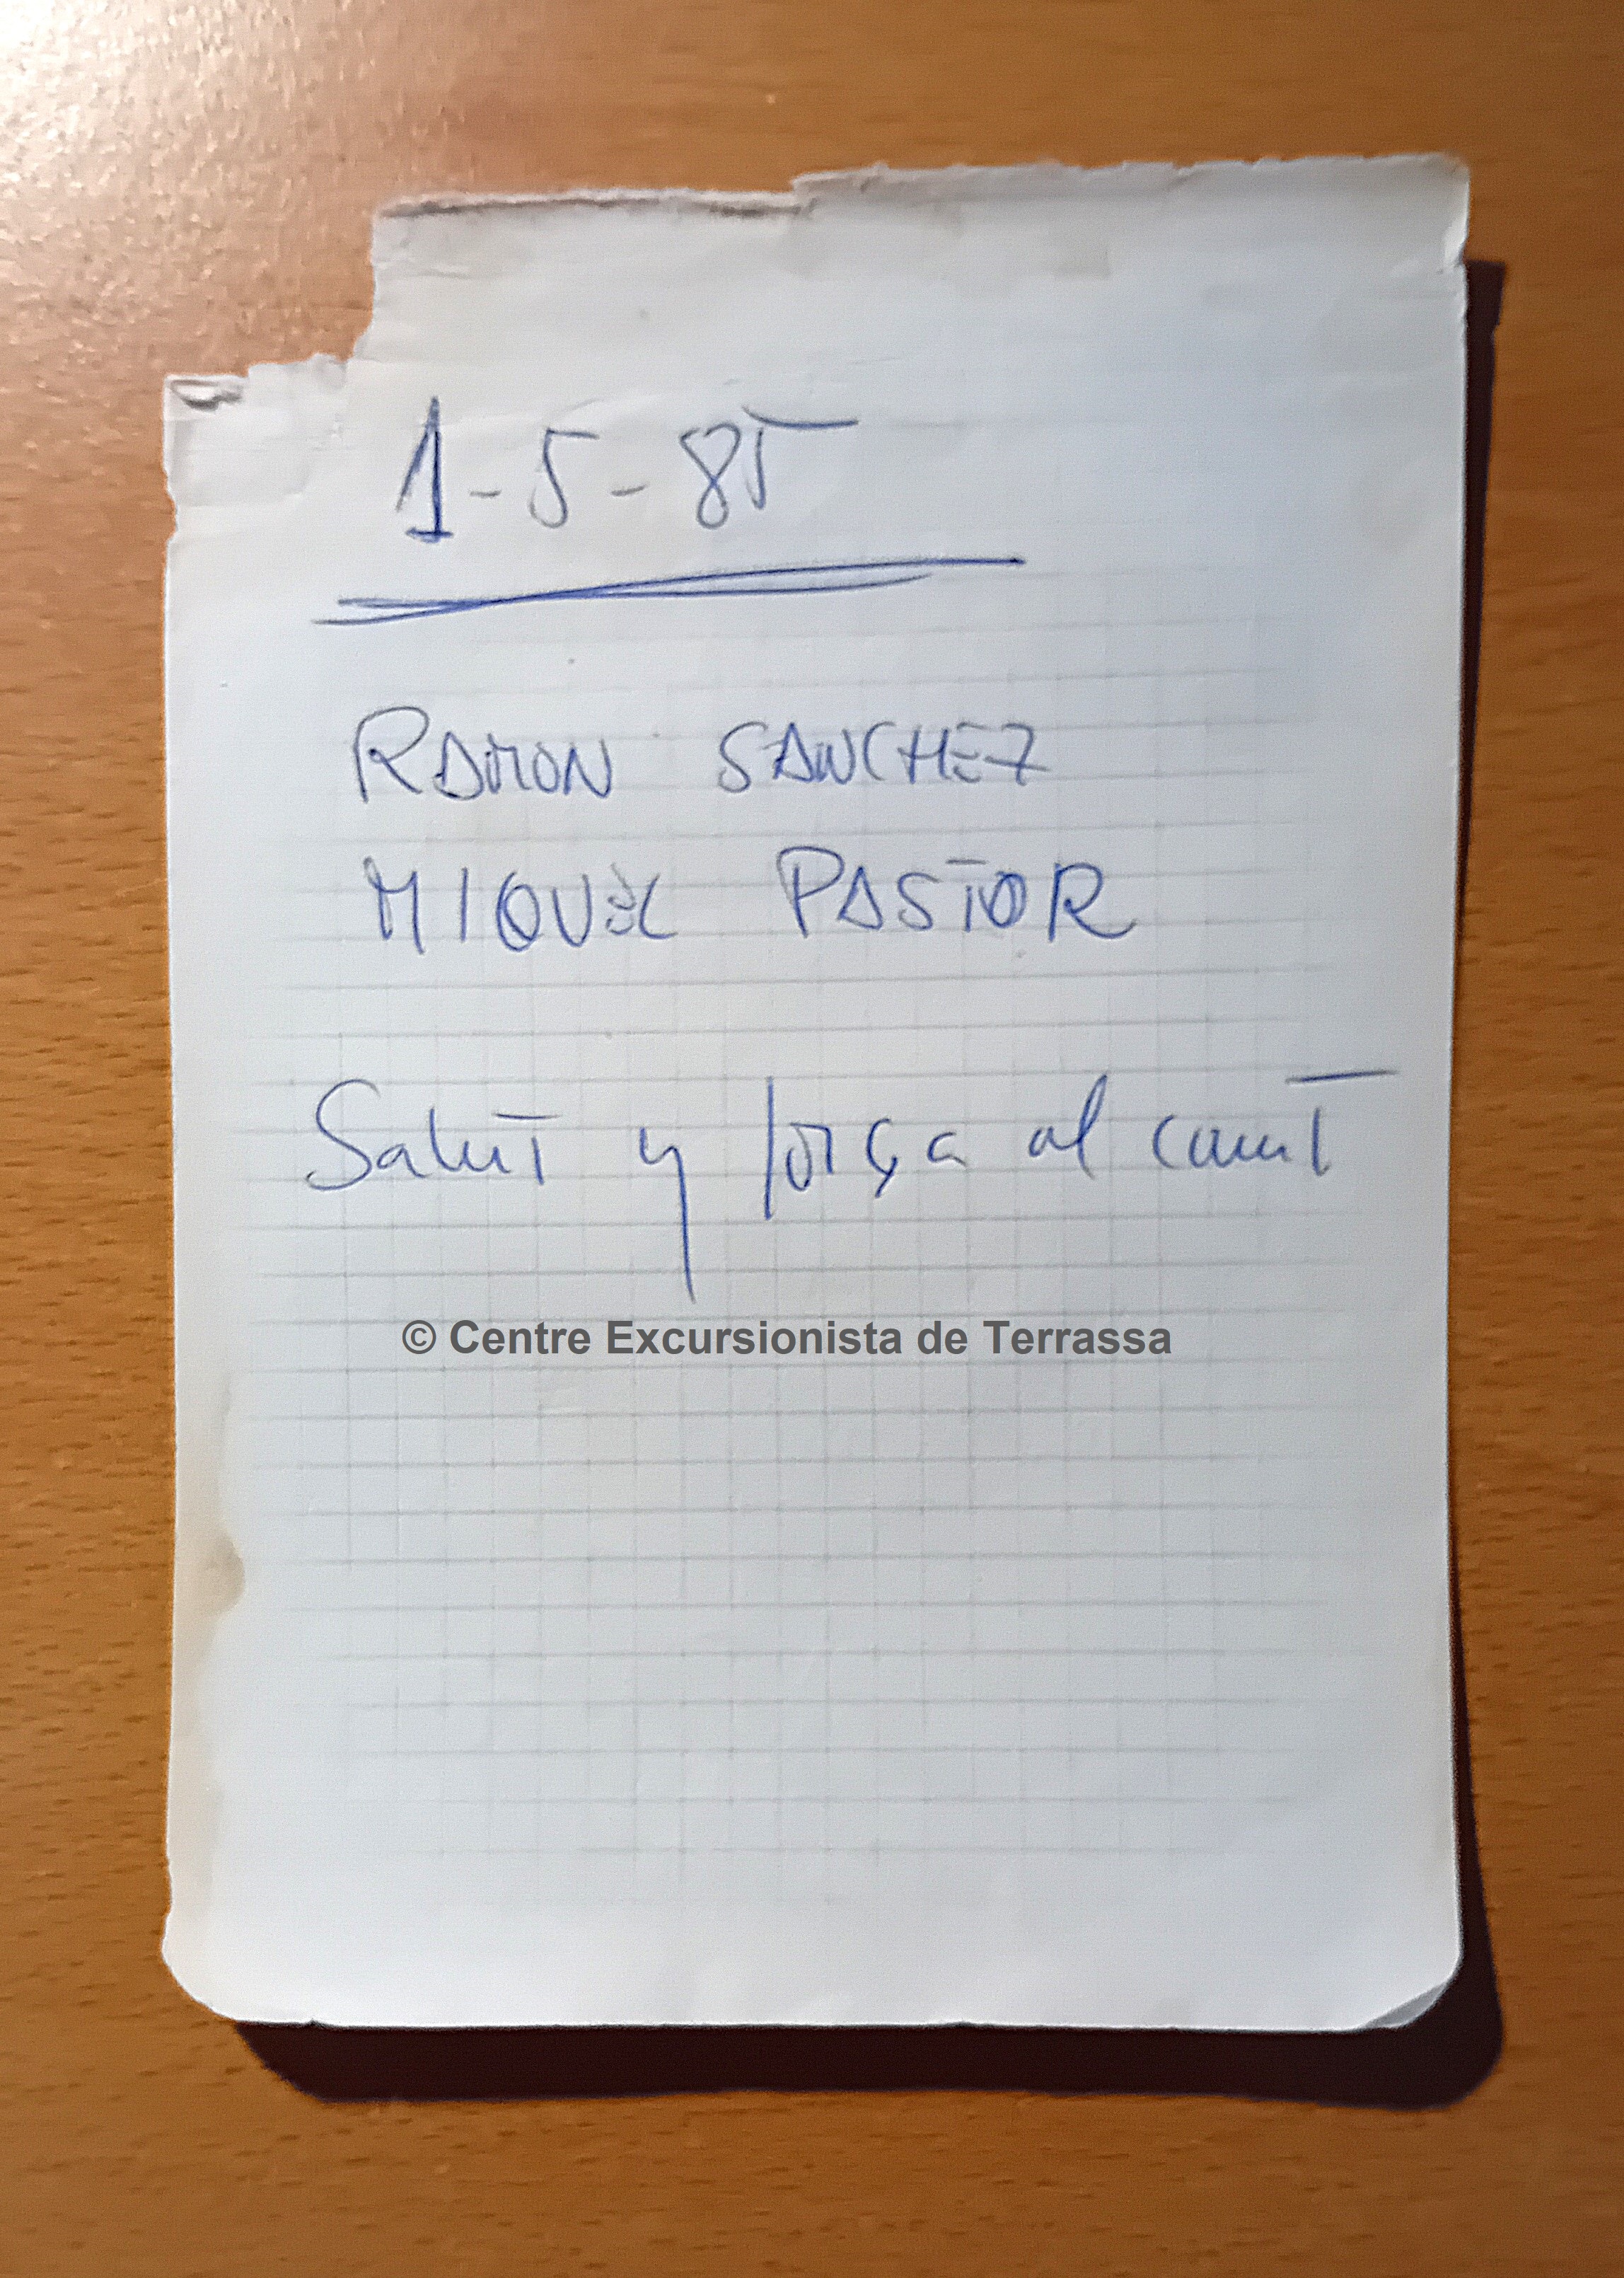 1-5-85
RAMON SANCHEZ
MIQUEL PASTOR
Salut y força al canut
© Centre Excursionista de Terrassa